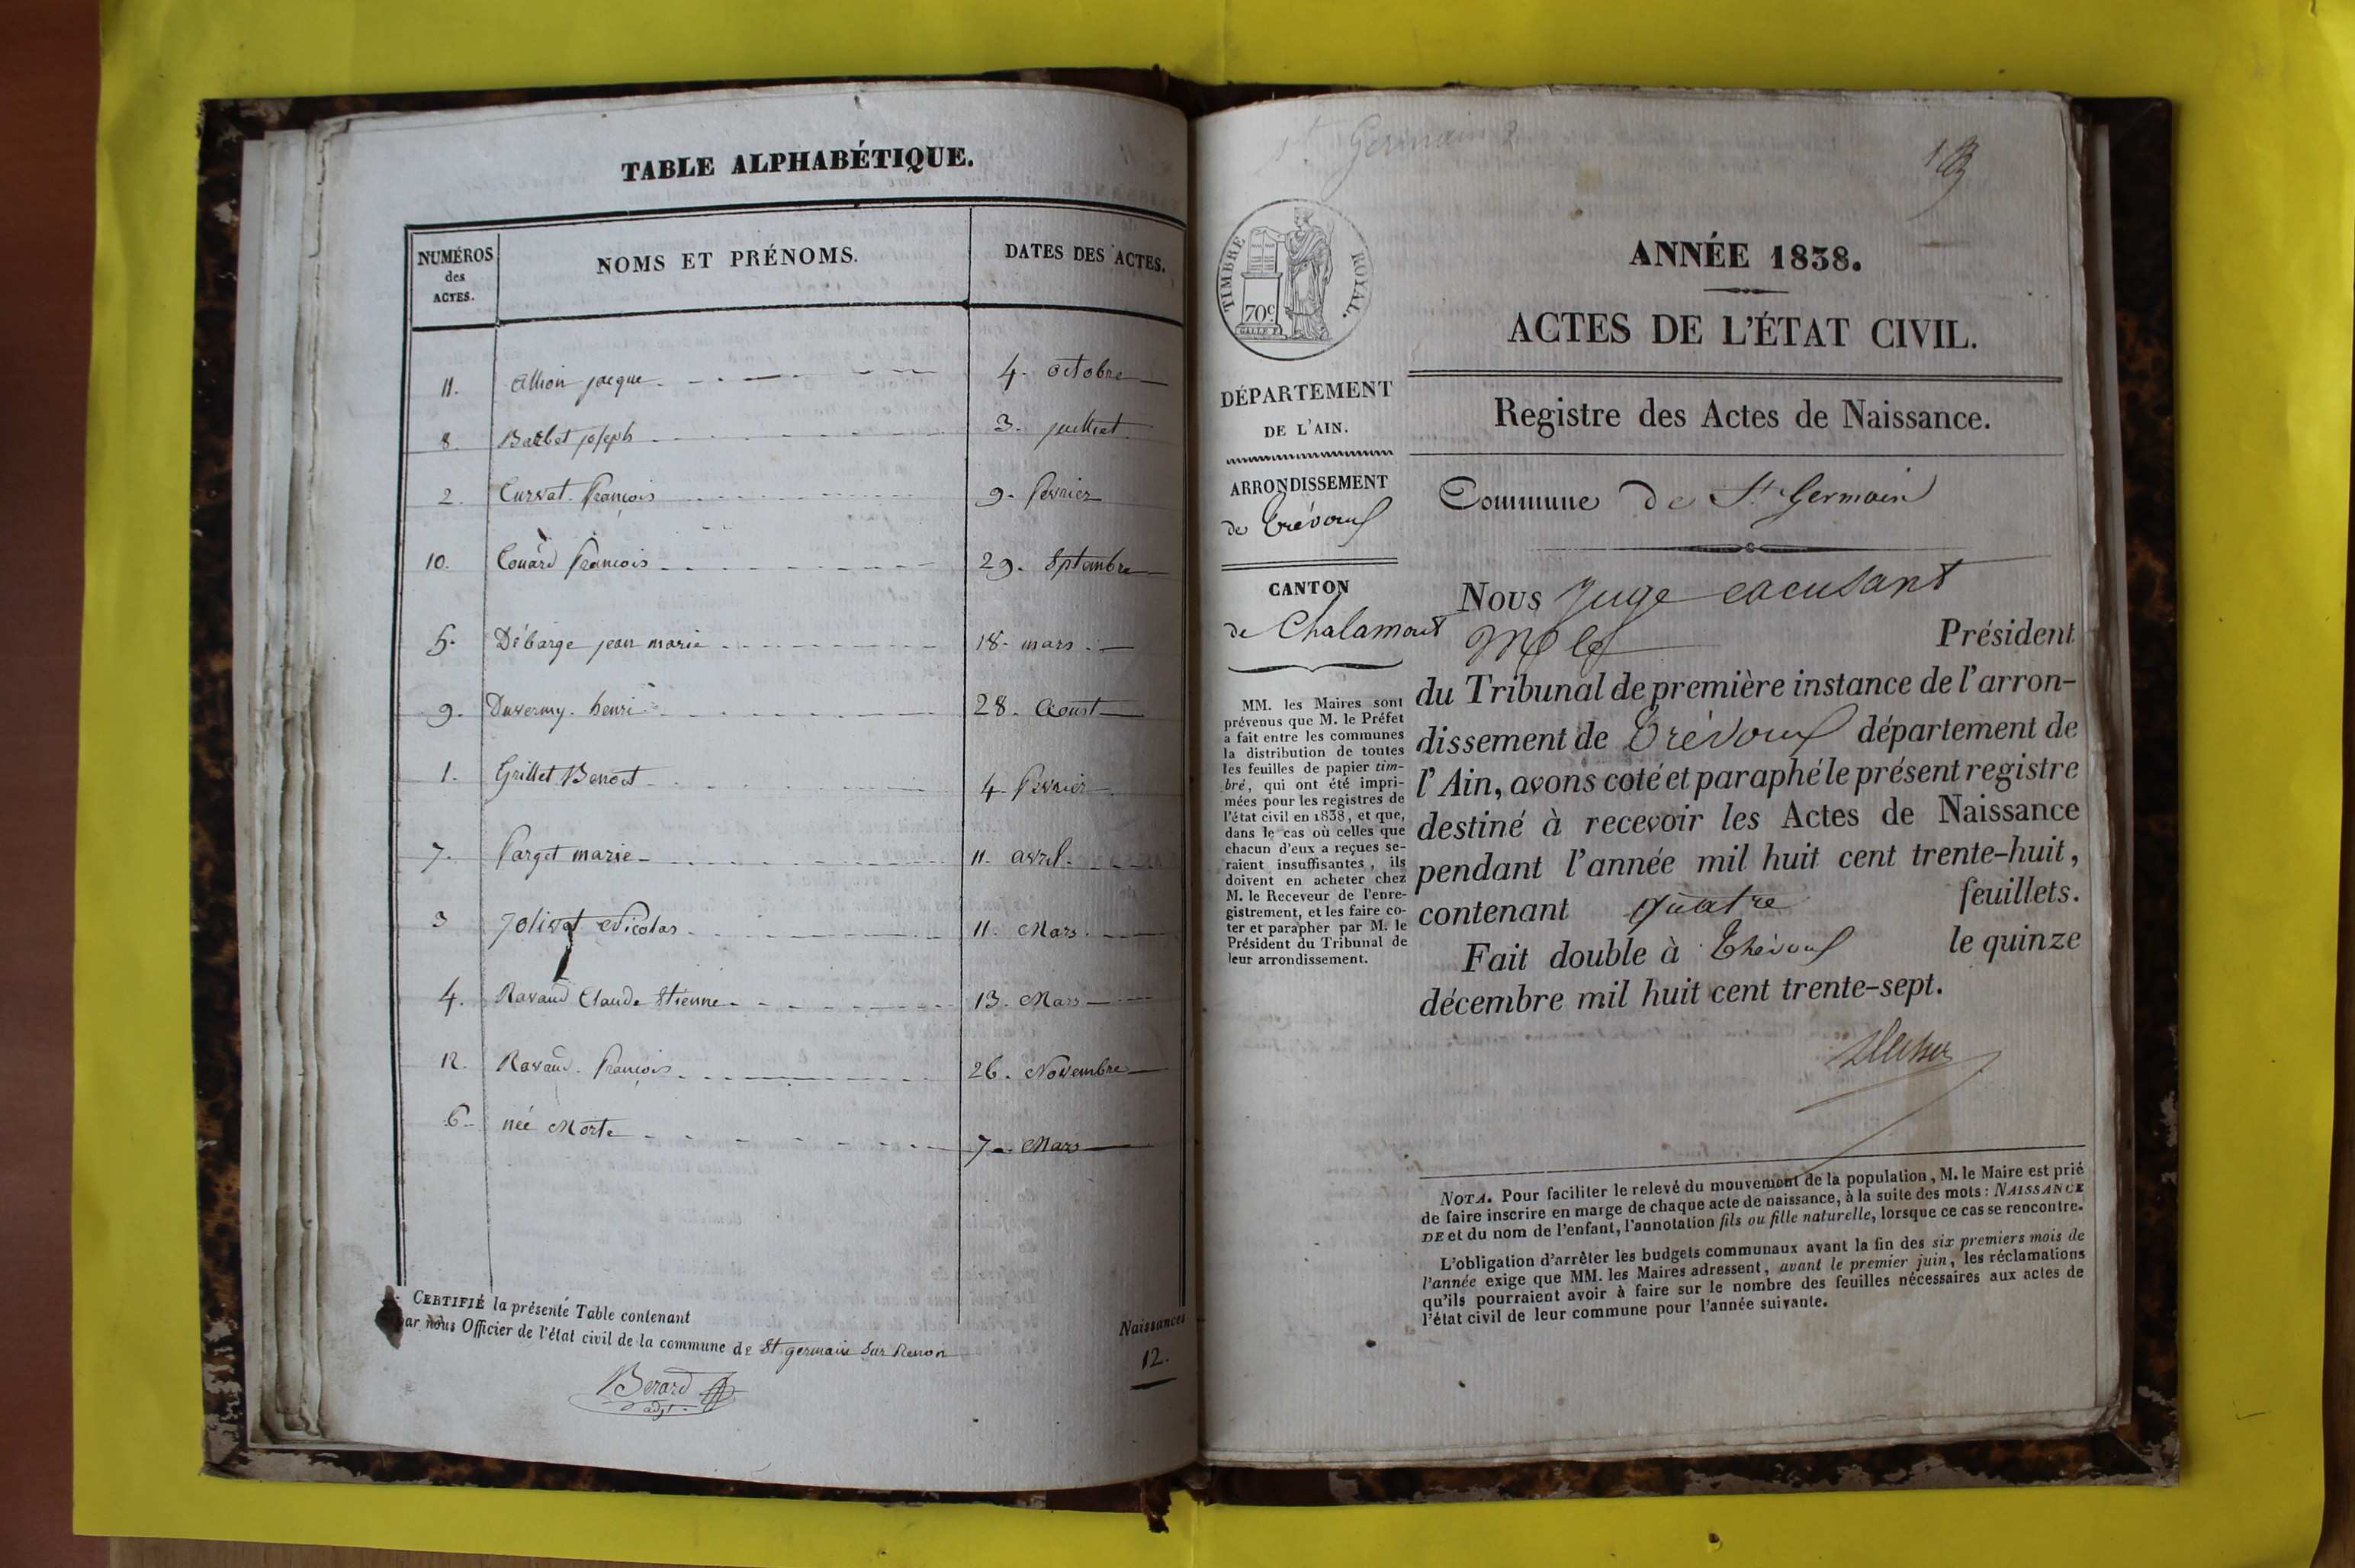 TABLE ALPHABÉTIQUE.
NUMÉROS des ACTES. NOMS ET PRÉNOMS. DATES DES ACTES.
11. Allion jacque 4. octobre
8. Barbet joseph 3. juilliet
2. Curvat. françois 9. fevrier
10. Couard francois 29. Sptembre
5. Débarge jean marie 18. mars
9. henri 28. Aoust
1. Grillet Benoit 4. fevrier
7. farget marie 11. avril
3 jolivet Nicolas 11. Mars
4. Ravaud Claude Etienne 13. Mars
12. Ravaud. françois 26. Novembre
6. née Morte 7. Mars
CERTIFIÉ la présente Table contenant Naissances
par nous Officier de l'état civil de la commune de St germain Sur Renon 12.
Berard
adjt.
St Germain
TIMBRE ROYAL.
70c
ANNÉE 1838.
ACTES DE L'ÉTAT CIVIL.
DÉPARTEMENT
DE L'AIN.
ARRONDISSEMENT
de Trévoux
CANTON
de Chalamont
MM. les Maires sont
prévenus que M. le Préfet
a fait entre les communes
la distribution de toutes
les feuilles de papier tim-
bré, qui ont été impri-
mées pour les registres de
l'état civil en 1838, et que,
dans le cas où celles que
chacun d'eux a reçues se-
raient insuffisantes, ils
doivent en acheter chez
M. le Receveur de l'enre-
gistrement, et les faire co-
ter et parapher par M. le
Président du Tribunal de
leur arrondissement.
Registre des Actes de Naissance.
Commune de St Germain
Nous Juge
Président
du Tribunal de première instance de l'arron-
dissement de Trévoux département de
l'Ain, avons coté et paraphé le présent registre
destiné à recevoir les Actes de Naissance
pendant l'année mil huit cent trente-huit,
contenant quatre feuillets.
Fait double à Trévoux le quinze
décembre mil huit cent trente-sept.
NOTA. Pour faciliter le relevé du mouvement de la population, M. le Maire est prié
de faire inscrire en marge de chaque acte de naissance, à la suite des mots: NAISSANCE
DE et du nom de l'enfant, l'annotation fils ou fille naturelle, lorsque ce cas se rencontre.
L'obligation d'arrêter les budgets communaux avant la fin des six premiers mois de
l'année exige que MM. les Maires adressent, avant le premier juin, les réclamations
qu'ils pourraient avoir à faire sur le nombre des feuilles nécessaires aux actes de
l'état civil de leur commune pour l'année suivante.